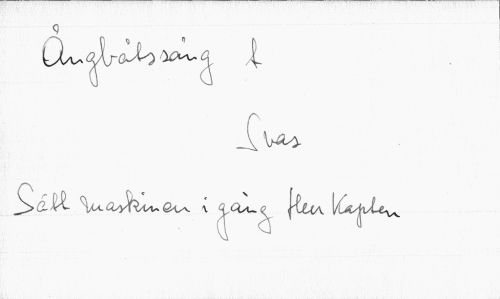 Ångbåtssång t
Svar
Sätt maskinen i gång Herr Kapten